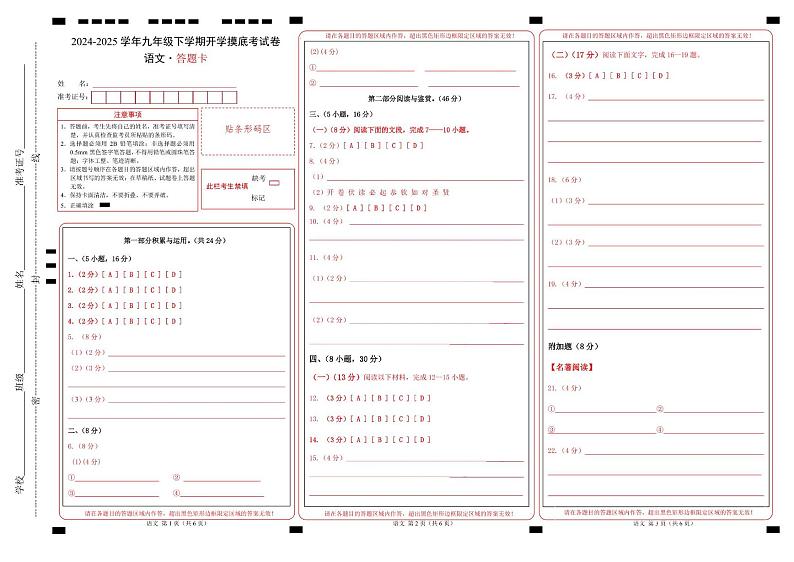 学校
班级
姓名
准考证号
密
封
线
2024-2025 学年九年级下学期开学摸底考试卷
语文·答题卡
姓 名：
准考证号：
注意事项
1．答题前，考生先将自己的姓名，准考证号填写清
楚，并认真检查监考员所粘贴的条形码。
2．选择题必须用 2B 铅笔填涂；非选择题必须用
0.5mm 黑色签字笔答题，不得用铅笔或圆珠笔答
题；字体工整、笔迹清晰。
3．请按题号顺序在各题目的答题区域内作答，超出
区域书写的答案无效；在草稿纸、试题卷上答题
无效。
4．保持卡面清洁，不要折叠、不要弄破。
5．正确填涂
贴条形码区
此栏考生禁填
缺考
标记
第一部分积累与运用。（共 24 分）
一、（5 小题，16 分）
1.（2 分）[ A ] [ B ] [ C ] [ D ]
2.（2 分）[ A ] [ B ] [ C ] [ D ]
3.（2 分）[ A ] [ B ] [ C ] [ D ]
4.（2 分）[ A ] [ B ] [ C ] [ D ]
5. （8 分）
（1）（2 分）
（2）（3 分）
（3）（3 分）
二、（8 分）
6.（8 分）
(1)(4 分)
① ②
③ ④
请在各题目的答题区域内作答，超出黑色矩形边框限定区域的答案无效！
语文 第 1 页（共 6 页）
请在各题目的答题区域内作答，超出黑色矩形边框限定区域的答案无效！
(2)(4 分)
①
②
第二部分阅读与鉴赏。（46 分）
三、（5 小题，16 分）
（一）（8 分）阅读下面的文段，完成 7——10 小题。
7.（2 分）[ A ] [ B ] [ C ] [ D ]
8.（4 分）
（1）
（2）开 卷 伏 读 必 起 恭 敬 如 对 圣 贤
9. （2 分）[ A ] [ B ] [ C ] [ D ]
10.（4 分）
11.（4 分）
（1）（2 分）
（2）（2 分）
四、（8 小题，30 分）
（一）（13 分）阅读以下材料，完成 12—15 小题。
12. （3分）[ A ] [ B ] [ C ] [ D ]
13. （3分）[ A ] [ B ] [ C ] [ D ]
14. （3分）[ A ] [ B ] [ C ] [ D ]
15.（4 分）
请在各题目的答题区域内作答，超出黑色矩形边框限定区域的答案无效！
语文 第 2 页（共 6 页）
请在各题目的答题区域内作答，超出黑色矩形边框限定区域的答案无效！
（二）（17 分）阅读下面文字，完成 16—19 题。
16. （3分）[ A ] [ B ] [ C ] [ D ]
17.（4 分）
18.（6 分）
（1）（3 分）
（2）（3 分）
19.（4 分）
附加题（8 分）
【名著阅读】
21.（4 分）
① ②
③ ④
22.（4 分）
请在各题目的答题区域内作答，超出黑色矩形边框限定区域的答案无效！
语文 第 3 页（共 6 页）